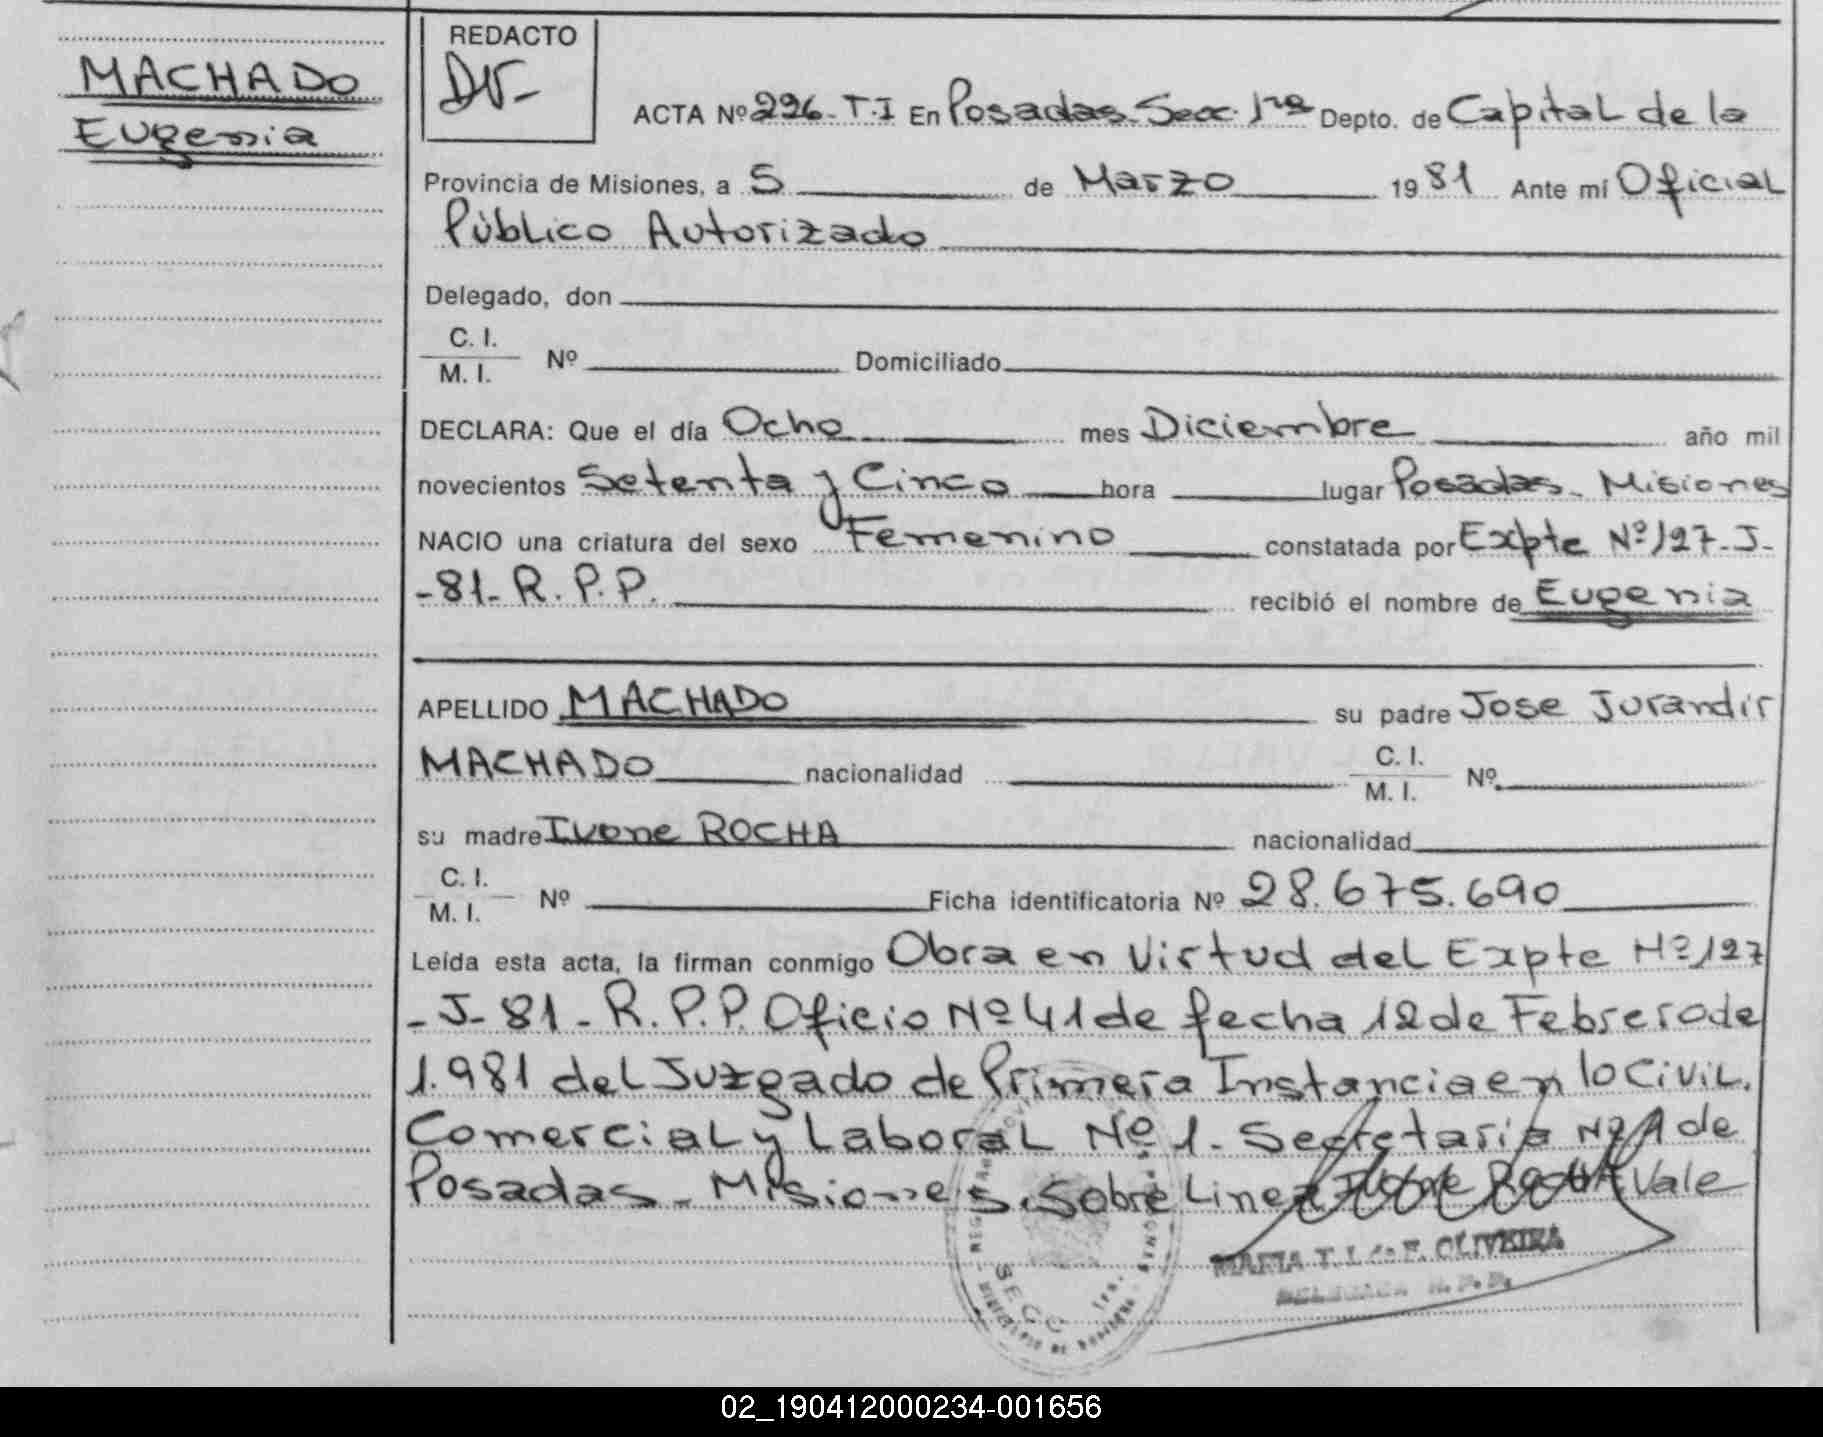 MACHADO
Eugenia
REDACTO
ACTA Nº 296 - T. I En Posadas - Secc. 1ra Depto. de Capital de la
Provincia de Misiones, a 5 de Marzo 1981 Ante mí Oficial
Público Autorizado
Delegado, don
C. I.
M. I. Nº Domiciliado
DECLARA: Que el día Ocho mes Diciembre año mil
novecientos Setenta y Cinco hora lugar Posadas - Misiones
NACIO una criatura del sexo Femenino constatada por Expte Nº 127 - J -
- 81 - R. P. P. recibió el nombre de Eugenia
APELLIDO MACHADO su padre Jose Jurandir
MACHADO nacionalidad C. I.
M. I. Nº
su madre Ivone ROCHA nacionalidad
C. I.
M. I. Nº Ficha identificatoria Nº 28.675.690
Leída esta acta, la firman conmigo Obra en Virtud del Expte Nº 127
- J - 81 - R. P. P. Oficio Nº 41 de fecha 12 de Febrero de
1.981 del Juzgado de Primera Instancia en lo Civil.
Comercial y Laboral Nº 1 - Secretaria Nº 1 de
Posadas - Misiones. Sobre Linea Ivone ROCHA Vale
MARIA T. L. de F. OLIVEIRA
DELEGADA R. P. P.
SECC. 1ra.
02_190412000234-001656